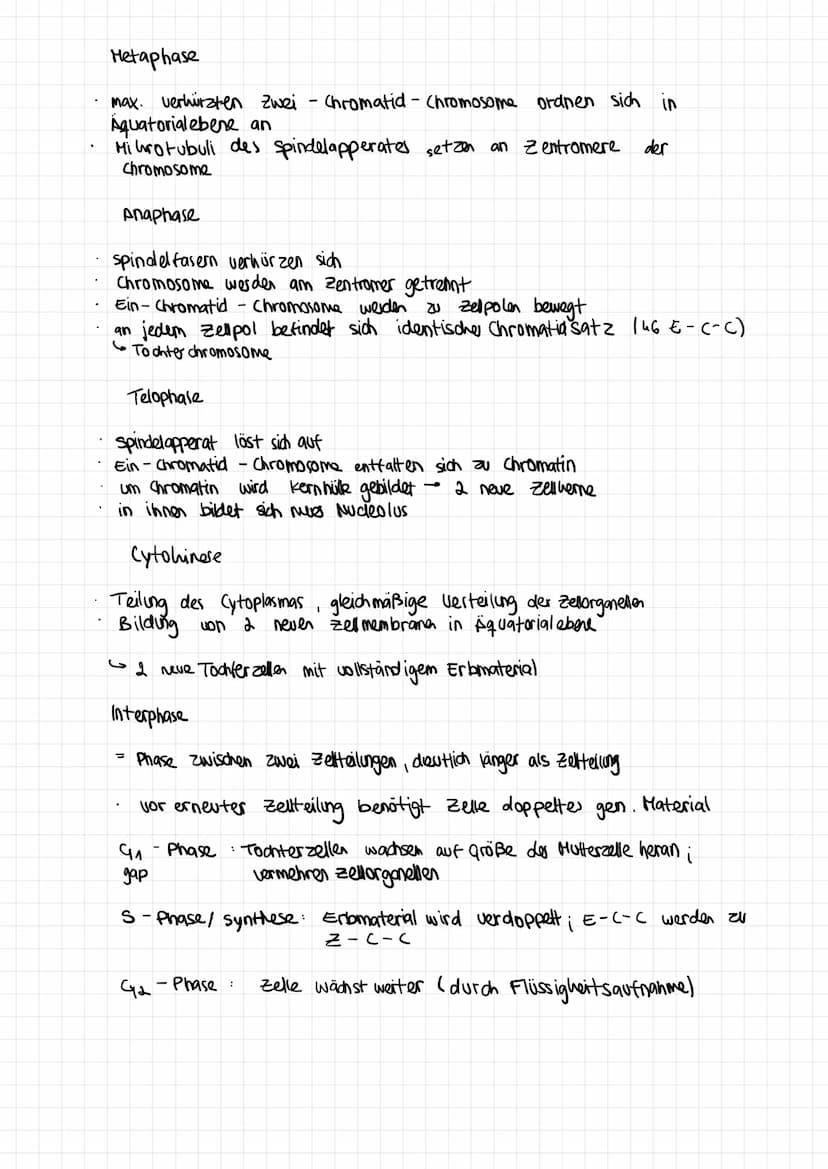 Metaphase
· max. verkürzten Zwei - Chromatid - Chromosome ordnen sich in
Äquatorialebene an
· Mikrotubuli des Spindelapperates setzen an Zentromere der
Chromosome
Anaphase
· Spindelfasern verkürzen sich
· Chromosome werden am Zentromer getrennt
· Ein - Chromatid - Chromosome werden zu Zellpolen bewegt
· an jedem Zellpol befindet sich identischer Chromatidsatz (46 E - C - C)
↳ Tochterchromosome
Telophase
· Spindelapperat löst sich auf
· Ein - Chromatid - Chromosome entfalten sich zu Chromatin
· um Chromatin wird Kernhülle gebildet → 2 neue Zellkerne
· in ihnen bildet sich neues Nucleolus
Cytokinese
· Teilung des Cytoplasmas, gleichmäßige Verteilung der Zellorganellen
· Bildung von 2 neuen Zellmembranen in Äquatorialebene
↳ 2 neue Tochterzellen mit vollständigem Erbmaterial
Interphase
= Phase zwischen zwei Zellteilungen, deutlich länger als Zellteilung
· vor erneuter Zellteilung benötigt Zelle doppeltes gen. Material
G1 - Phase : Tochterzellen wachsen auf Größe der Mutterzelle heran ;
gap vermehren Zellorganellen
S - Phase / Synthese : Erbmaterial wird verdoppelt ; E - C - C werden zu
Z - C - C
G2 - Phase : Zelle wächst weiter (durch Flüssigkeitsaufnahme)